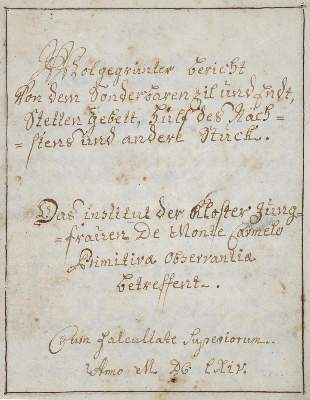 Wolgegrünter bericht
Von dem Sonderbaren zil und Endt,
Stetten gebett, hilf des Näch=
=stens und andere Stuck.
Das institut der Kloster Jung=
=frauen De Monte Carmelo
Primitiva Observantia
betreffent.
Cum facultate Superiorum.
Anno M DC LXIV.